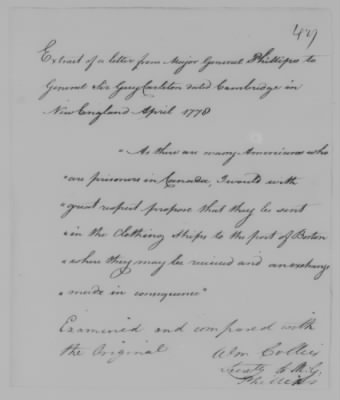 429
Extract of a letter from Major General Phillips to
General Sir Guy Carleton dated Cambridge in
New England April 1778
"As there are many Americans who
"are prisoners in Canada, I would with
"great respect propose that they be sent
"in the Cloathing Ships to the port of Boston
"where they may be received and an exchange
"made in consequence"
Examined and compared with
the Original
Wm Collier
Secrety to M. G.
Phillips